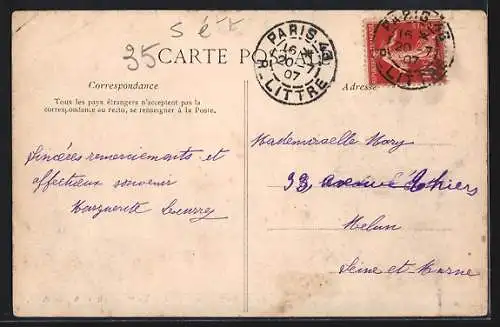 35
CARTE POSTALE
PARIS 43
16
20 - 7
07
R. LITTRE
PARIS 43
16
20 7
07
R. LITTRE
Correspondance
Adresse
Tous les pays étrangers n'acceptent pas la
correspondance au recto, se renseigner à la Poste.
Mademoiselle Mary
Sincères remerciements et
affectueux souvenir
33, avenue Thiers
Marguerite
Melun
Seine-et-Marne